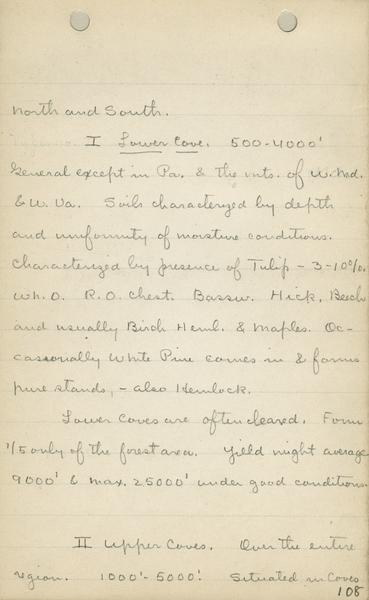 north and South.
I Lower Cove. 500-4000'
General except in Pa. & the mts. of W. Md.
& W. Va. Soils characterized by depth
and uniformity of moisture conditions.
Characterized by presence of Tulip - 3-10%.
Wh. O. R. O. Chest. Bassw. Hick. Beech
and usually Birch Heml. & Maples. Oc-
cassionally White Pine comes in & forms
pure stands, - also Hemlock.
Lower Coves are often cleared. Form
1/5 only of the forest area. Yield might average
9000' & max. 25000' under good conditions.
II Upper Coves. Over the entire
region. 1000'-5000'. Situated in Coves
108